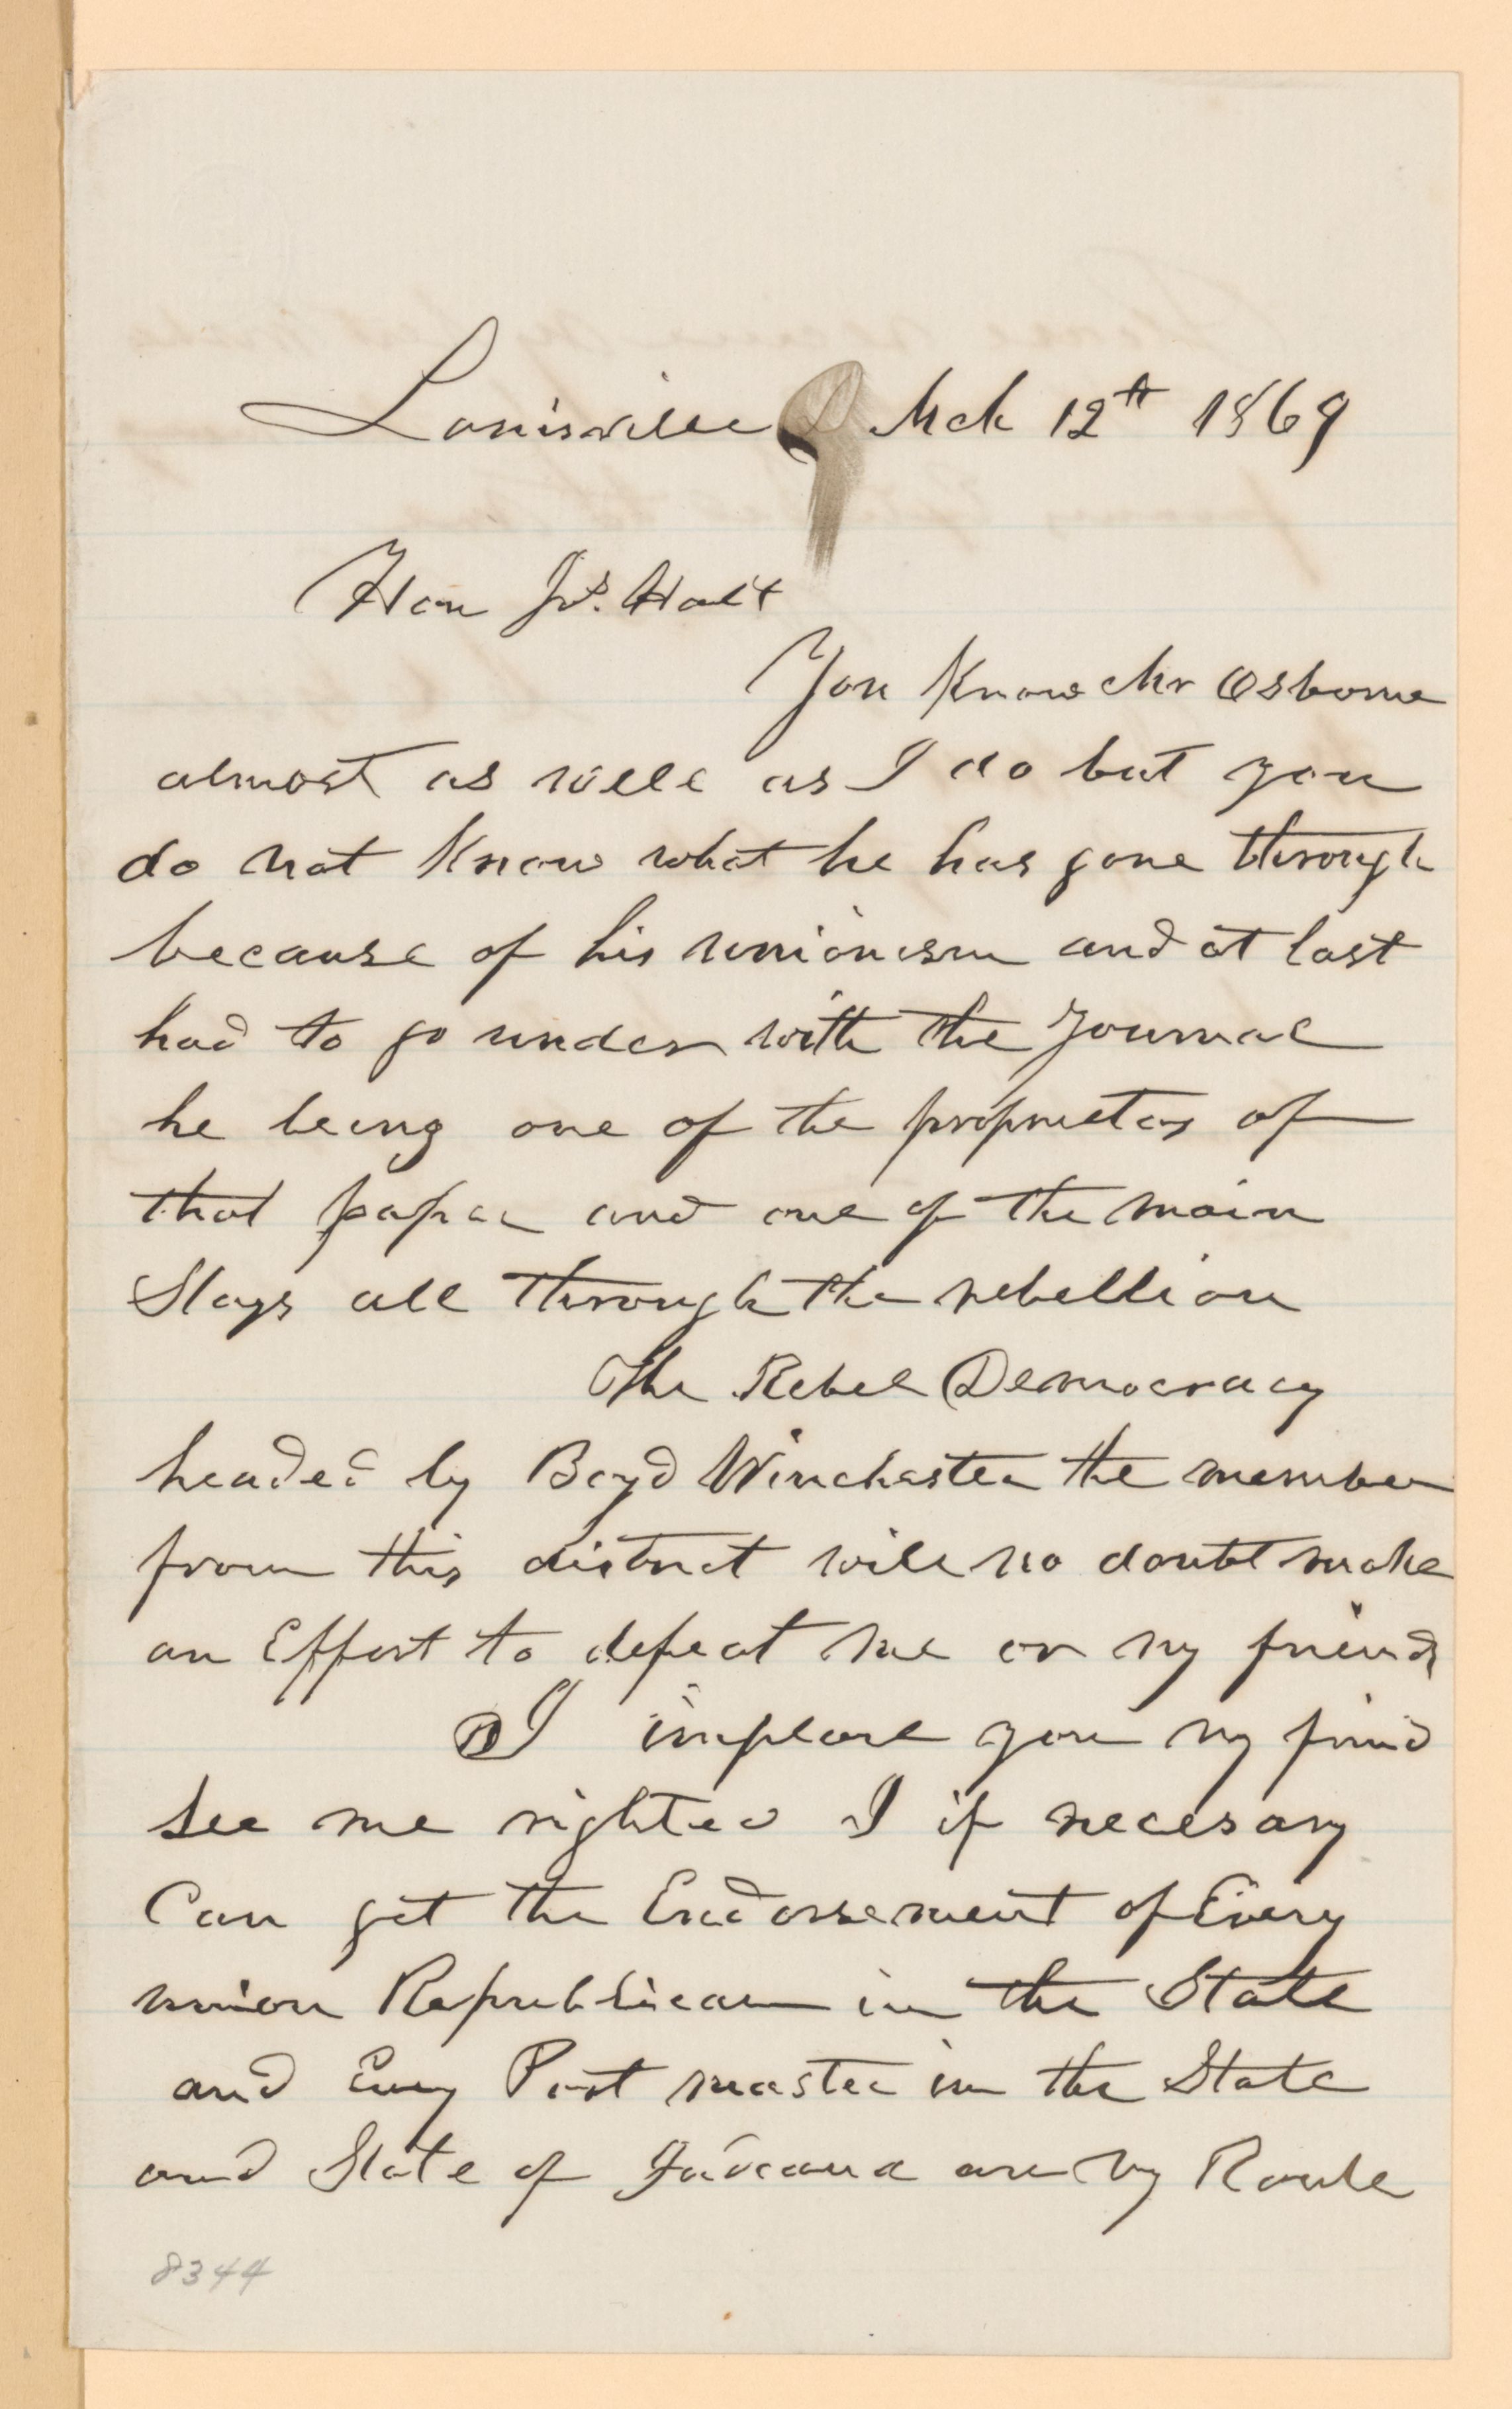 Louisville Mch 12th 1869
Hon Js. Holt
You Know Mr Osborne
almost as well as I do but you
do not Know what he has gone through
because of his unionism and at last
had to go under with the Journal
he being one of the proprietors of
that paper and one of the main
Stays all through the rebellion
The Rebel Democracy
headed by Boyd Winchester the member
from this district will no doubt make
an Effort to defeat me or my friends
I implore you my friend
See me righted I if necesary
Can get the Endorsement of Every
union Republican in the State
and Every Post master in the State
and State of Indiana on my Route
8344